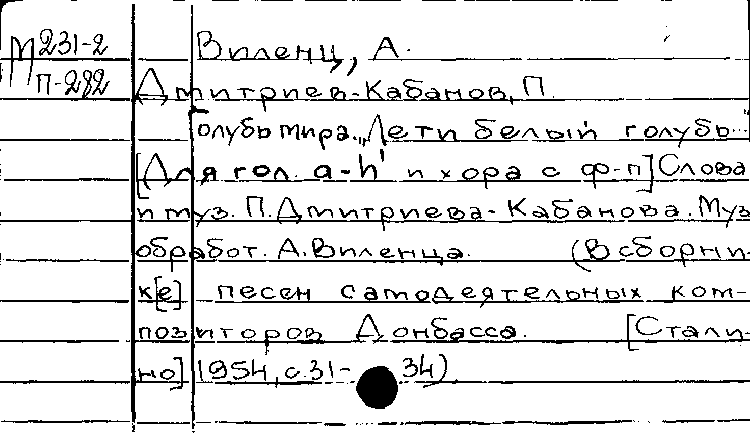 М 231-2
П-282
Виленц, А.
Дмитриев-Кабанов, П.
Голубь мира. „Лети белый голубь..."
[Для гол. a-h' и хора с ф-п] Слова
и муз. П. Дмитриева-Кабанова. Муз
обработ. А. Виленца. (В сборни-
к[е] песен самодеятельных ком-
позиторов Донбасса. [Стали-
но] 1954, с. 31-34)